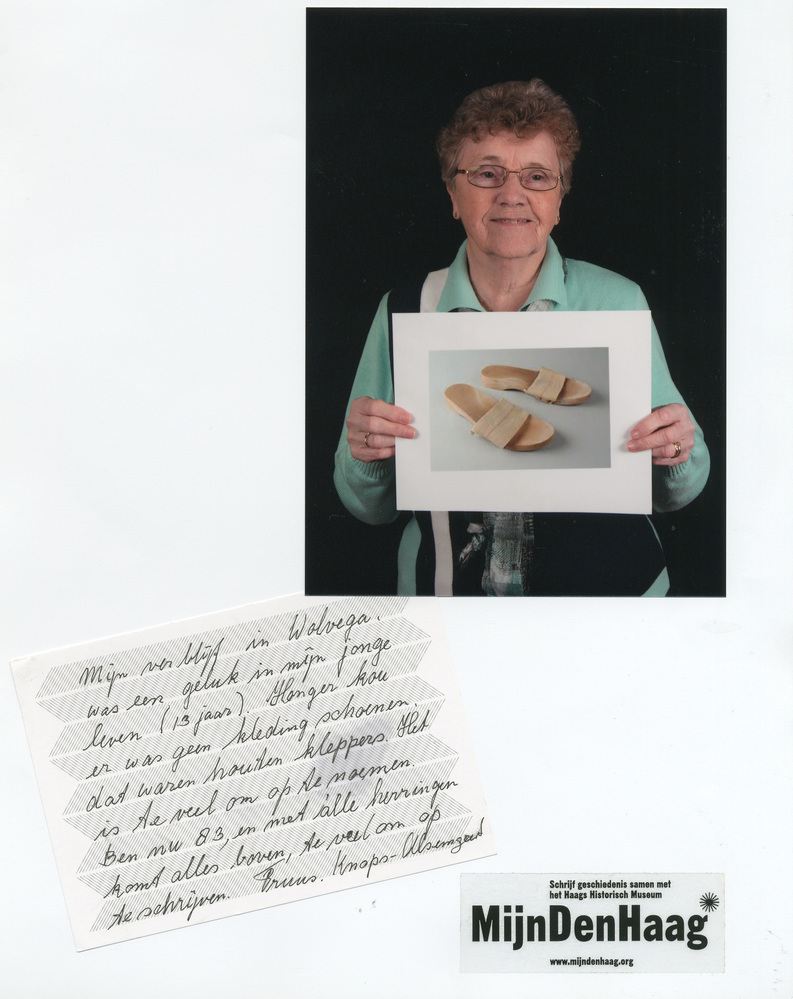 Mijn verblijf in Wolvega.
was een geluk in mijn jonge
leven (13 jaar). Honger kou
er was geen kleding schoenen.
dat waren houten kleppers. Het
is te veel om op te noemen.
Ben nu 83, en met alle herringen
komt alles boven, te veel om op
te schrijven. Truus. Knops-Alsemgeest
Schrijf geschiedenis samen met
het Haags Historisch Museum
MijnDenHaag
www.mijndenhaag.org